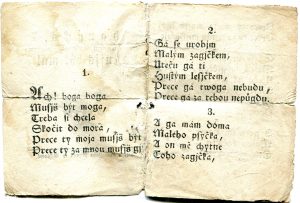 1.
Ach! boga boga
Musýš být moga,
Treba si chcela
Skočit do morá,
Prece ty moja musýš být
Prece ty za mnou musýš gj
2.
Gá se urobjm
Malým zagjčkem,
Uteču gá ti
Hustým lesýčkem,
Prece gá twoga nebudu,
Prece gá za tebou nepúgdu.
3.
A gá mám dóma
Malého psýčka,
A on mě chytne
Toho zagjčka,